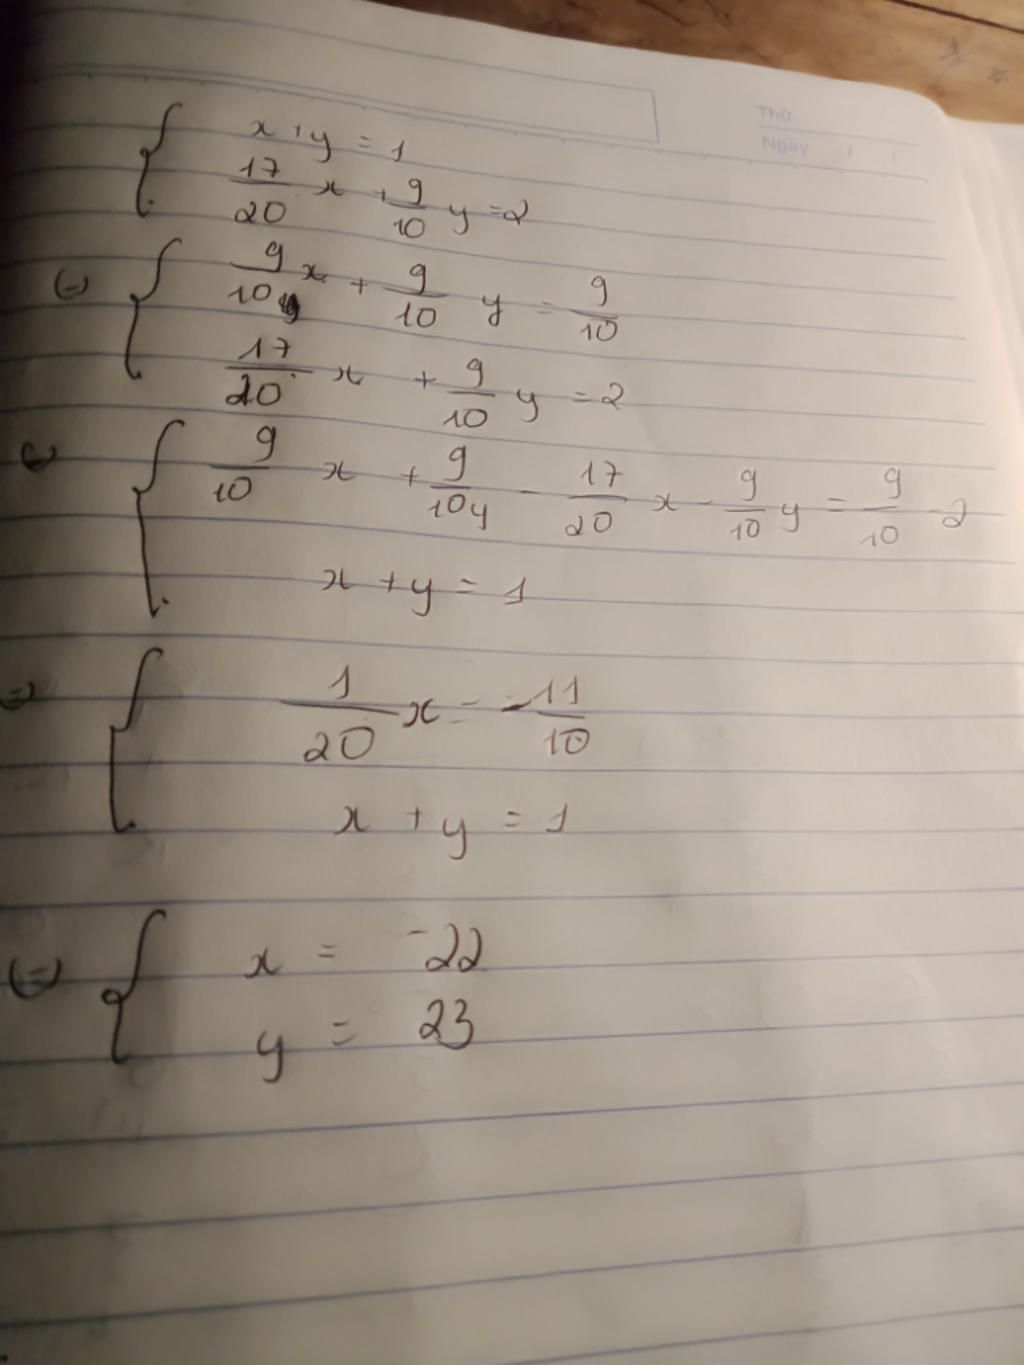 Thứ
Ngày / /
{ x + y = 1
17/20 x + 9/10 y = 2
(=) { 9/10 x + 9/10 y = 9/10
17/20 x + 9/10 y = 2
(=) { 9/10 x + 9/10 y - 17/20 x - 9/10 y = 9/10 - 2
x + y = 1
=) { 1/20 x = -11/10
x + y = 1
(=) { x = -22
y = 23